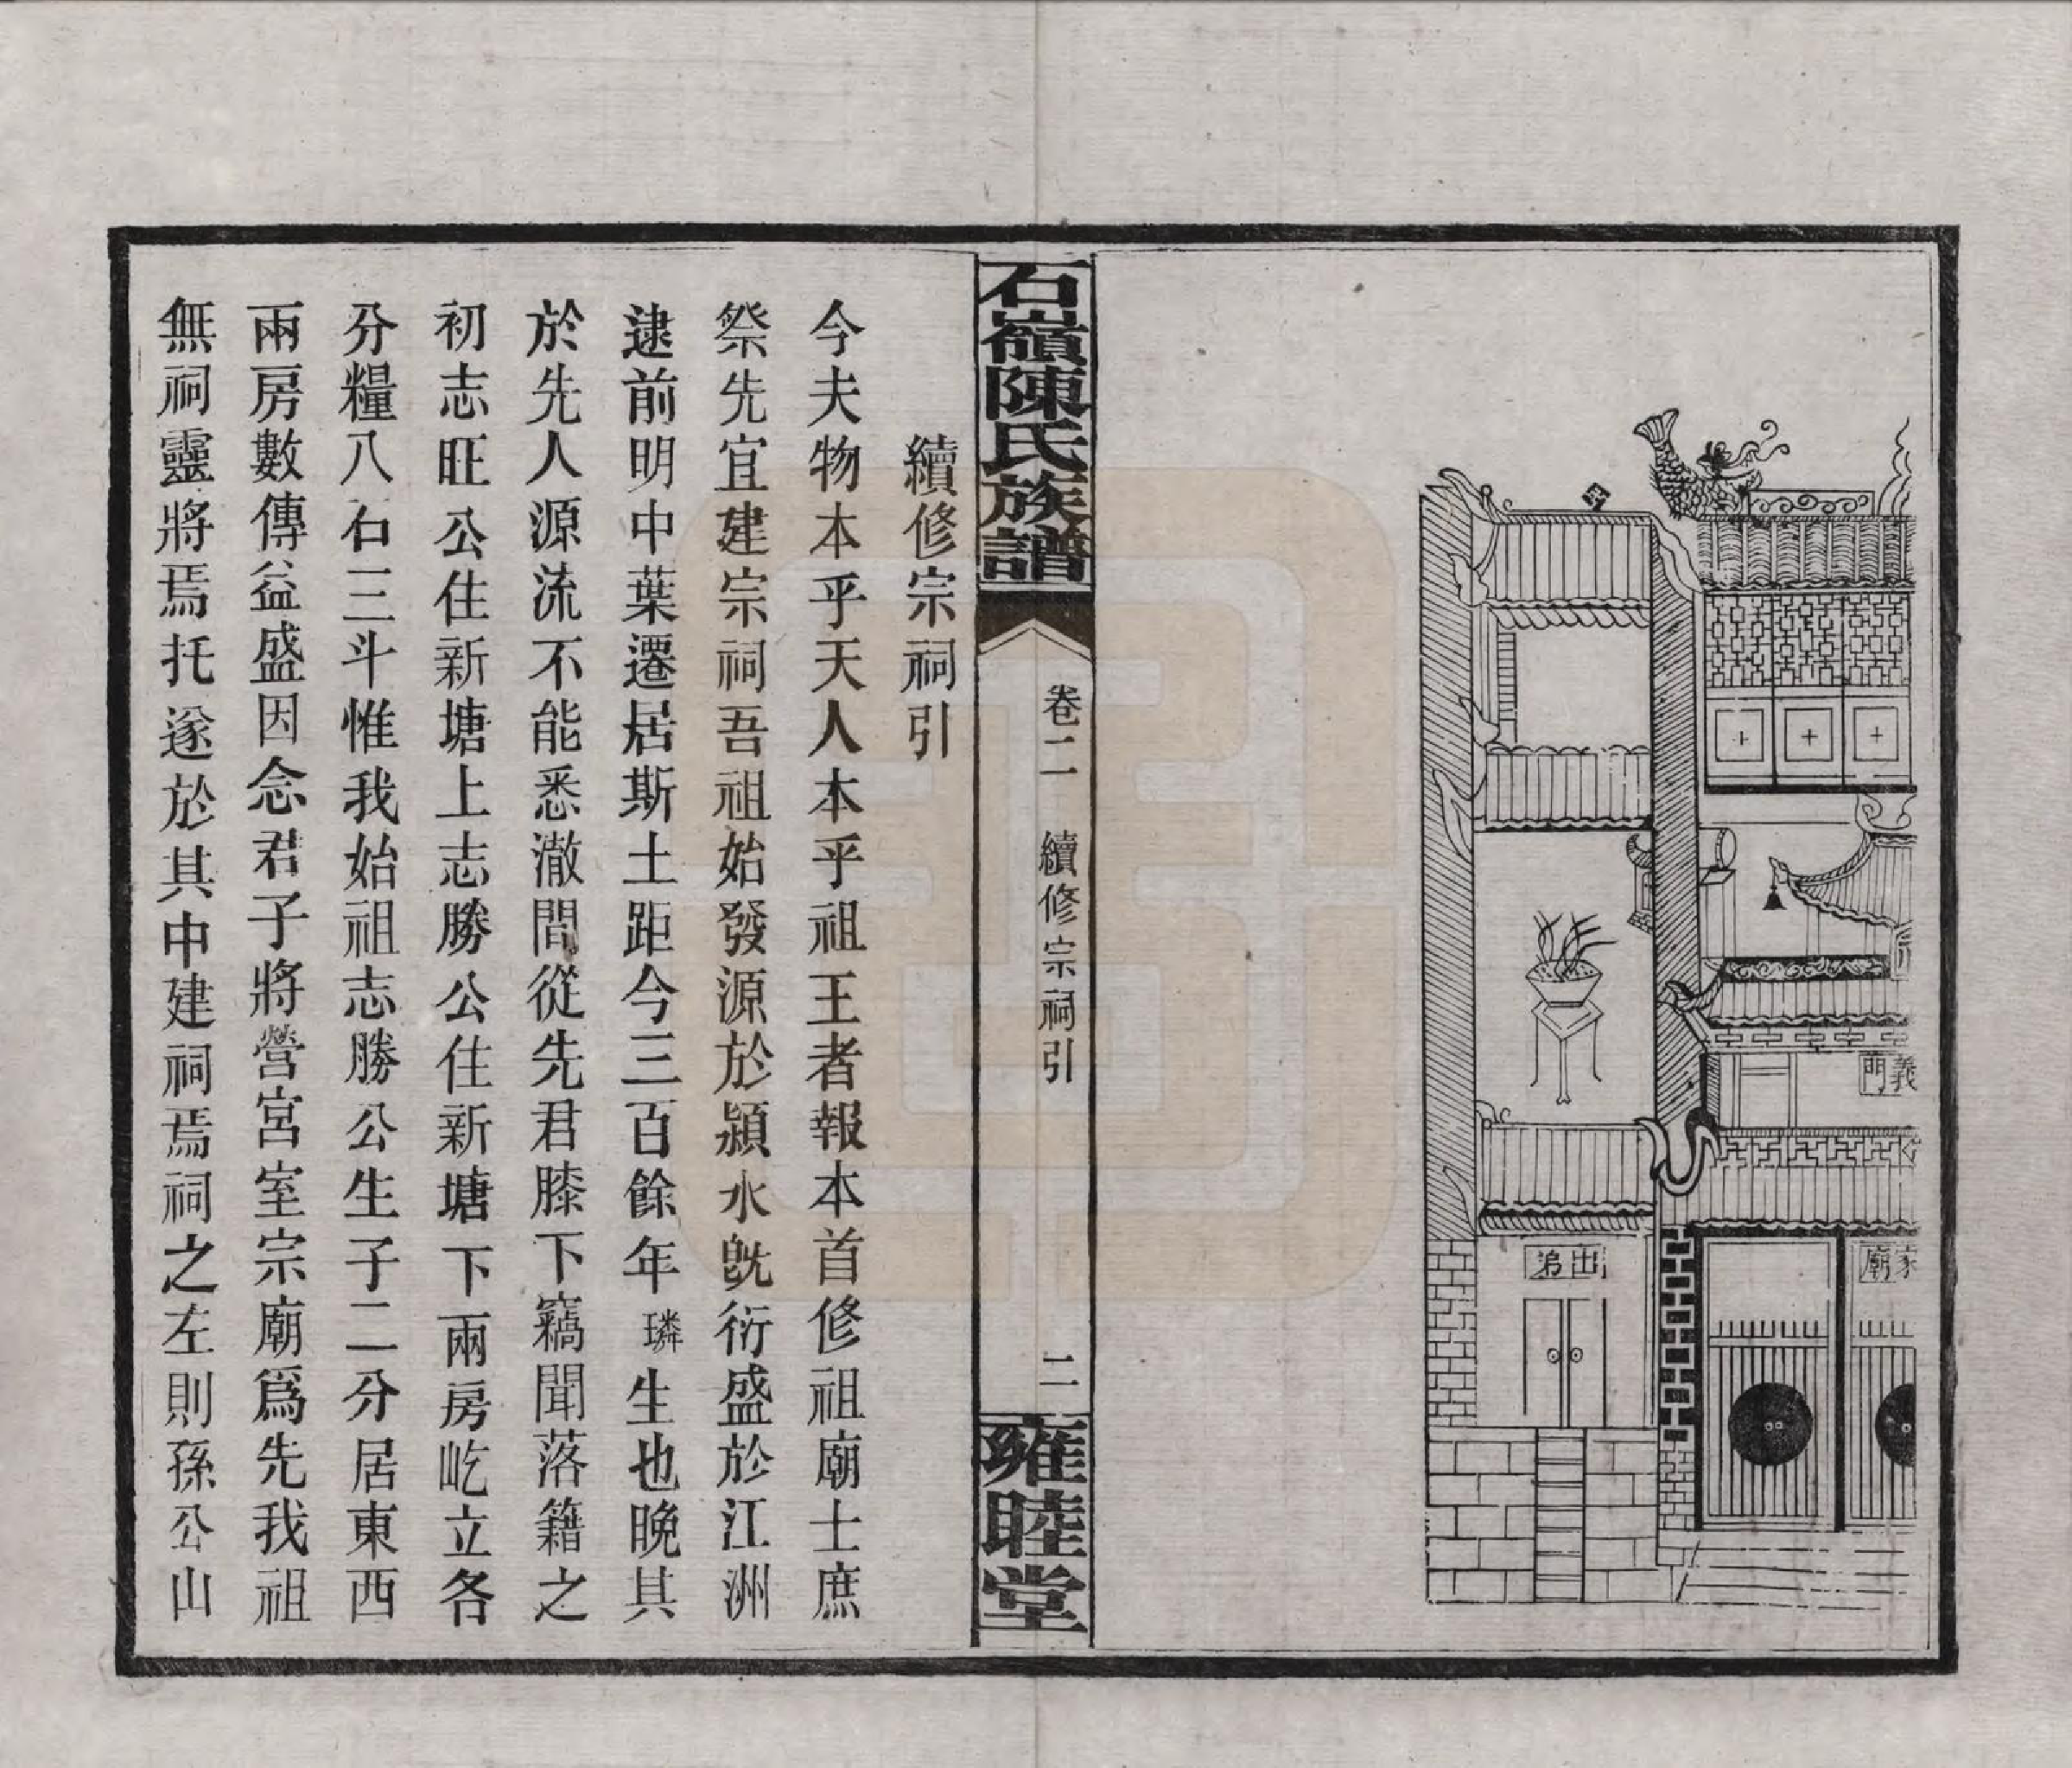 義
門
家
廟
出
弟
石嶺陳氏族譜
卷二
續修宗祠引
二
雍睦堂
續修宗祠引
今夫物本乎天人本乎祖王者報本首修祖廟士庶
祭先宜建宗祠吾祖始發源於潁水旣衍盛於江洲
逮前明中葉遷居斯土距今三百餘年璘生也晚其
於先人源流不能悉澈間從先君膝下竊聞落籍之
初志旺公住新塘上志勝公住新塘下兩房屹立各
分糧八石三斗惟我始祖志勝公生子二分居東西
兩房數傳益盛因念君子將營宮室宗廟爲先我祖
無祠靈將焉托遂於其中建祠焉祠之左則孫公山